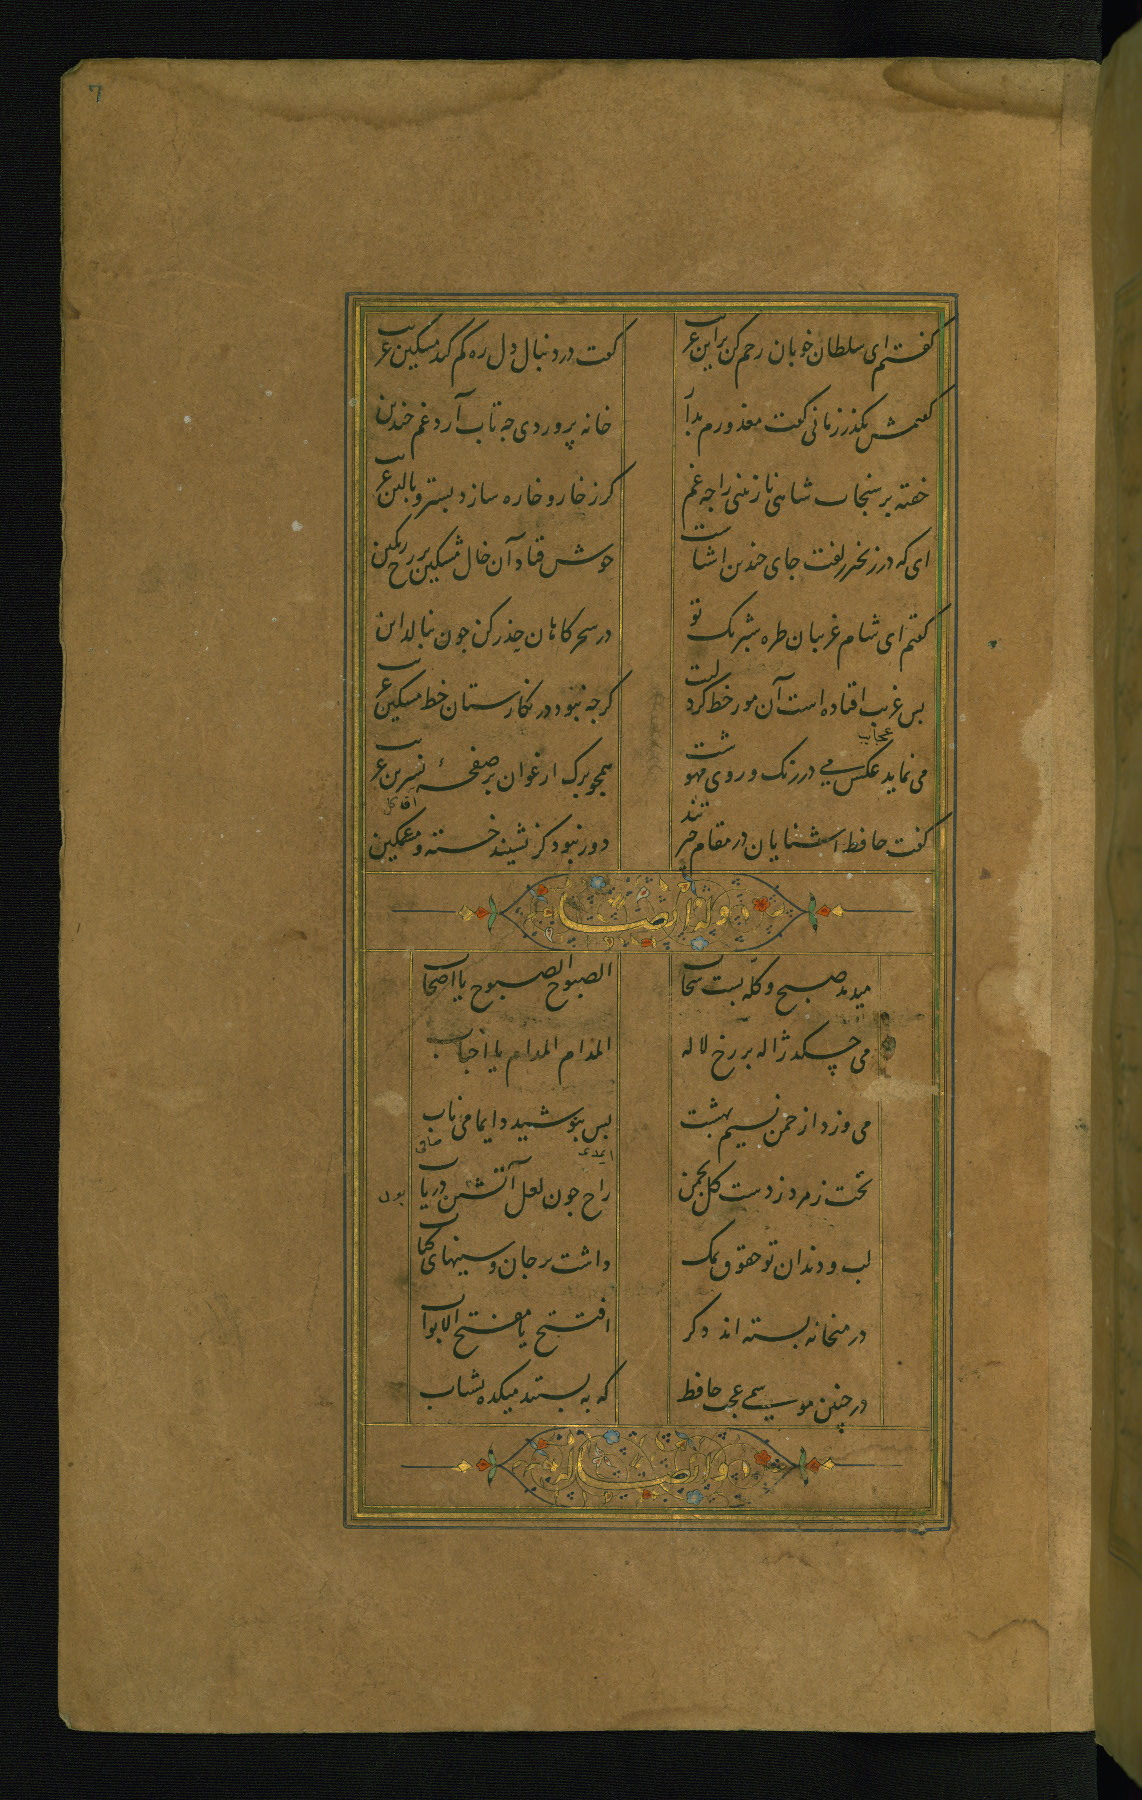 7
کفتم ای سلطان خوبان رحم کن بر این غریب کفت در دنبال دل ره کم کند مسکین غریب
کفتمش مکذر زمانی کفت معذورم بدار خانه پروردی جه تاب آرد غم جندین غریب
خفته بر سنجاب شاهی نازنینی را جه غم کر ز خار و خاره سازد بستر و بالین غریب
ای که در زنجیر زلفت جای جندین اشناست خوش فتاد آن خال مشکین بر رخ رنکین غریب
کفتم ای شام غریبان طره شبرنک تو در سحرکاهان حذر کن جون بنالد این غریب
بس غریب افتاده است آن مور خط کرد لبت کرجه نبود در نکارستان خط مشکین غریب
عجایب
می نماید عکس می در رنک و روی مهوشت همجو برک ارغوان بر صفحهٔ نسرین غریب
کفت حافظ اشنایان در مقام حیرتند دور نبود کر نشیند خسته و غمکین غریب
وله ایضا
میدمد صبح و کله بست سحاب الصبوح الصبوح یا اصحاب
می چکد ژاله بر رخ لاله المدام المدام یا احباب
می وزد از جمن نسیم بهشت بس بنوشید دایما می ناب
تخت زمرد زدست کل بجمن راح جون لعل آتشین دریاب
لب و دندان تو حقوق نمک داشت بر جان و سینهای کباب
در میخانه بسته اند دکر افتتح یا مفتح الابواب
در چنین موسمی عجب حافظ که به بستند میکده بشتاب
وله ایضا